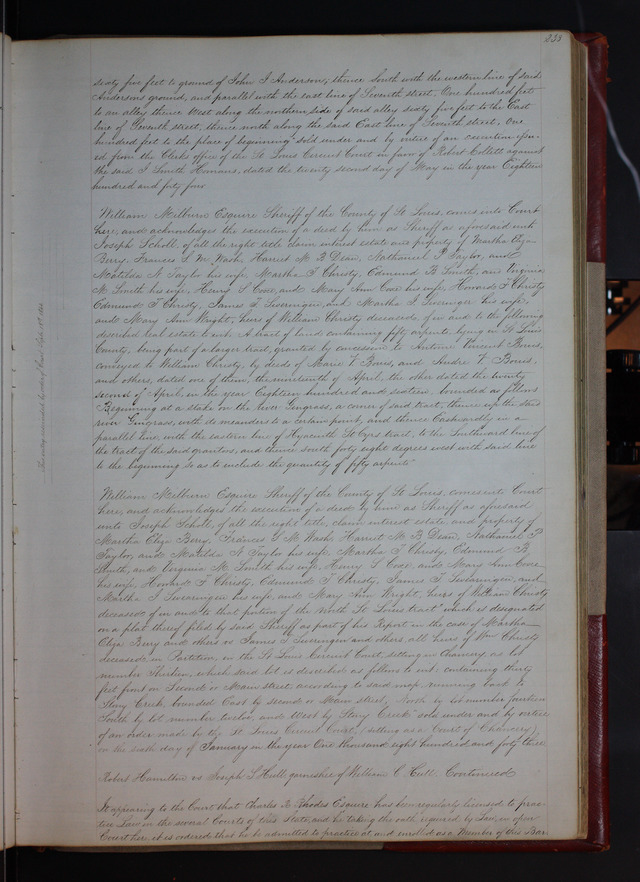 233
sixty five feet to ground of John J Anderson, thence South with the western line of said
Andersons ground, and parallel with the east line of Seventh street, One hundred feet
to an alley thence West along the northern side of said alley sixty five feet to the East
line of Seventh street, thence north along the said East line of Seventh street, One
hundred feet to the place of beginning" sold under and by virtue of an execution issu-
ed from the Clerks office of the St Louis Circuit Court in favor of Robert Collett against
the said J Smith Homans, dated the twenty second day of May in the year Eighteen
hundred and forty four
William Milburn Esquire Sheriff of the County of St Louis, comes into Court
here, and acknowledges the execution of a deed by him as Sheriff as aforesaid unto
Joseph Scholl, of all the right title claim interest estate and property of Martha Eliza
Berry, Frances S. M. Wash, Harriet M B Dean, Nathaniel P Taylor, and
Matilda N Taylor his wife, Martha T Christy, Edmund B Smith, and Virginia
M. Smith his wife, Henry S Coxe, and Mary Ann Coxe his wife, Howard F Christy
Edmund T Christy, James T. Swearingen, and Martha I. his wife,
and Mary Ann Wright, heirs of William Christy deceased, of in and to the following
described real estate to wit. A tract of land containing fifty arpents, lying in St Louis
County, being part of a larger tract, granted by concession to Antoine Vincent Bouis,
conveyed to William Christy, by deeds of Marie V Bouis, and Andre V Bouis,
and others, dated one of them, the nineteenth of April, the other dated the twenty
second of April, in the year Eighteen hundred and sixteen, bounded as follows
Beginning at a stake on the river Gingrass, a corner of said tract, thence up the said
river Gingrass, with its meanders to a certain point, and thence Eastwardly in a
parallel line, with the eastern line of Hyacinth St Cyrs tract, to the Southward line of
the tract of the said grantors, and thence south forty eight degrees west with said line
to the beginning so as to include the quantity of fifty arpents
William Milburn Esquire Sheriff of the County of St Louis, comes into Court
here, and acknowledges the execution of a deed by him as Sheriff as aforesaid
unto Joseph Scholl, of all the right title, claim interest estate and property of
Martha Eliza Berry, Frances S M. Wash, Harriet M B Dean, Nathaniel P
Taylor, and Matilda N Taylor his wife, Martha T Christy, Edmund B
Smith, and Virginia M Smith his wife, Henry S Coxe, and Mary Ann Coxe
his wife, Howard F Christy, Edmund T Christy, James T Swearingen, and
Martha I Swearingen his wife, and Mary Ann Wright, heirs of William Christy
deceased of in and to that portion of the North St Louis tract" which is designated
on a plat thereof filed by said Sheriff as part of his Report in the case of Martha
Eliza Berry and others vs James T Swearingen and others all heirs of Wm Christy
deceased in Partition, in the St Louis Circuit Court, sitting in Chancery, as lot
number Thirteen, which said lot is described as follows to wit. containing thirty
feet front on Second or Main street, according to said map running back to
Stony Creek, bounded East by second or Main street, North by lot number fourteen
South by lot number twelve, and West by Stony Creek" sold under and by virtue
of an order made by the St Louis Circuit Court, (sitting as a Court of Chancery)
on the sixth day of January in the year One thousand eight hundred and forty three
Robert Hamilton vs Joseph S Hull garnishee of William C Hull. Continued
It appearing to the Court that Charles B Rhodes Esquire has been regularly licensed to prac-
tice Law, in the several Courts of this State, and he taking the oath required by Law, in open
Court here, it is ordered that he be admitted to practice at and enrolled as a Member of this Bar